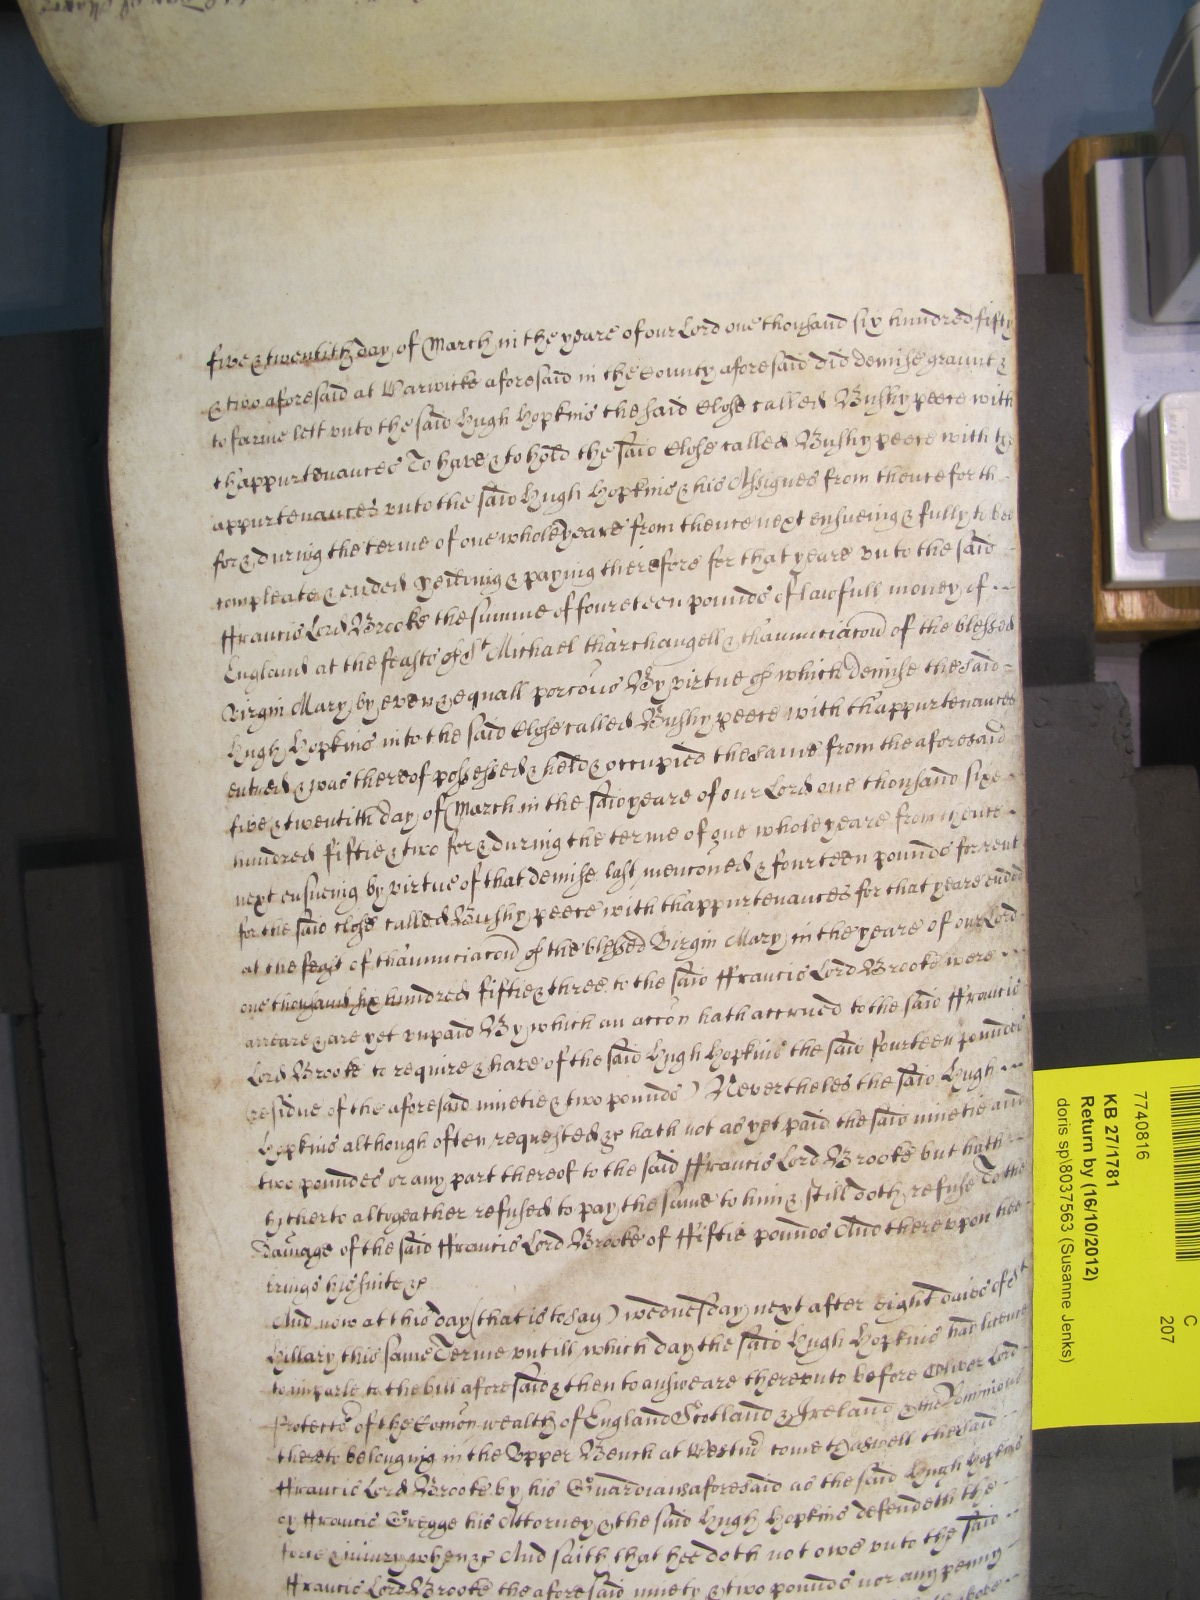 five & twentith day of March in the yeare of our Lord one thousand six hundred fifty
& two aforesaid at Warwicke aforesaid in the County aforesaid did demise graunt &
to farme lett vnto the said Hugh Hopkins the said Close called Bushy peece with
thappurtenances To have & to hold the said Close called Bushy peece with th
appurtenances vnto the said Hugh Hopkins & his Assignes from thence forth
for & during the terme of one whole yeare from thence next ensueing & fully to bee
compleate & ended yeilding & paying therefore for that yeare vnto the said
ffrancis Lord Brooke the summe of foureteen pounds of lawfull money of
England at the feasts of St Michael tharchangell & thannunciacon of the blessed
Virgin Mary by even & equall porcons By virtue of which demise the said
Hugh Hopkins into the said Close called Bushy peece with thappurtenances
entred & was thereof possessed & held & occupied the same from the aforesaid
five & twentith day of March in the said yeare of our Lord one thousand sixe
hundred fiftie & two for & during the terme of one whole yeare from thence
next ensueing by virtue of that demise last mencioned & fourteen pounds for rent
for the said close called Bushy peece with thappurtenances for that yeare ended
at the feast of thannunciacon of the blessed Virgin Mary in the yeare of our Lord
one thousand six hundred fiftie & three to the said ffrancis Lord Brooke were
arreare & are yet vnpaid By which an accon hath accrued to the said ffrancis
Lord Brooke to require & have of the said Hugh Hopkins the said fourteen pounds
residue of the aforesaid ninetie & two pounds) Nevertheles the said Hugh
Hopkins although often requested &c hath not as yet paid the said ninetie and
two poundes or any part thereof to the said ffrancis Lord Brooke but hath
hitherto altogeather refused to pay the same to him & still doth refuse To the
damage of the said ffrancis Lord Brooke of ffiftie pounds And therevpon hee
brings his suite &c
And now at this day (that is to say) wednesday next after eight daies of St
Hillary this same Terme vntill which day the said Hugh Hopkins had licence
to imparle to the bill aforesaid & then to answeare therevnto before Oliver Lord
Protector of the Comon wealth of England Scotland & Ireland & the Dominions
thereto belonging in the Vpper Bench at Westm come aswell the said
ffrancis Lord Brooke by his Guardians aforesaid as the said Hugh Hopkins
by ffrancis Gregge his Attorney & the said Hugh Hopkins defendeth the
force & iniury when &c And saith that hee doth not owe vnto the said
ffrancis Lord Brooke the aforesaid ninety & two pounds nor any penny
7740816
KB 27/1781
Return by (16/10/2012)
doris sp\8037563 (Susanne Jenks)
C
207